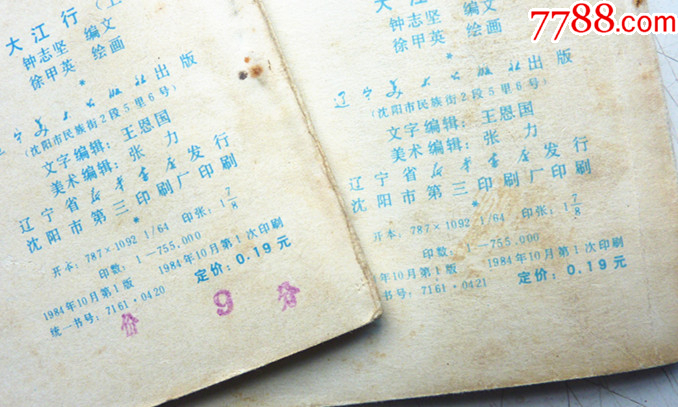 大江行（上
钟志坚 编文
徐甲英 绘画
*
辽宁美术出版社出版
(沈阳市民族街2段5里6号)
文字编辑：王恩国
美术编辑：张 力
辽宁省新华书店发行
沈阳市第三印刷厂印刷
*
开本：787×1092 1/64 印张：1 7/8
印数：1—755,000
1984年10月第1版 1984年10月第1次印刷
统一书号：7161·0420 定价：0.19元
价 9 分
7788.com
钟志坚 编文
徐甲英 绘画
*
辽宁美术出版社出版
(沈阳市民族街2段5里6号)
文字编辑：王恩国
美术编辑：张 力
辽宁省新华书店发行
沈阳市第三印刷厂印刷
*
开本：787×1092 1/64 印张：1 7/8
印数：1—755,000
984年10月第1版 1984年10月第1次印刷
书号：7161·0421 定价：0.19元